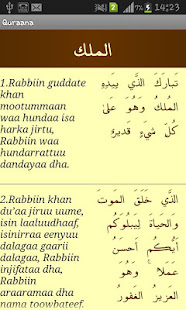 14:23
Quraana
الملك
1.Rabbiin guddate
khan
mootummaan
waa hundaa isa
harka jirtu,
Rabbiin waa
hundarrattuu
dandayaa dha.
تَبَارَكَ الَّذِي بِيَدِهِ
الْمُلْكُ وَهُوَ عَلَىٰ
كُلِّ شَيْءٍ قَدِيرٌ
2.Rabbiin khan
du'aa jiruu uume,
isin laaluudhaaf,
isinirraa eenyuu
dalagaa gaarii
dalagaa, Rabbiin
injifataa dha,
Rabbiin
araaramaa dha
nama toowbateef.
الَّذِي خَلَقَ الْمَوْتَ
وَالْحَيَاةَ لِيَبْلُوَكُمْ
أَيُّكُمْ أَحْسَنُ
عَمَلًا ۚ وَهُوَ
الْعَزِيزُ الْغَفُورُ